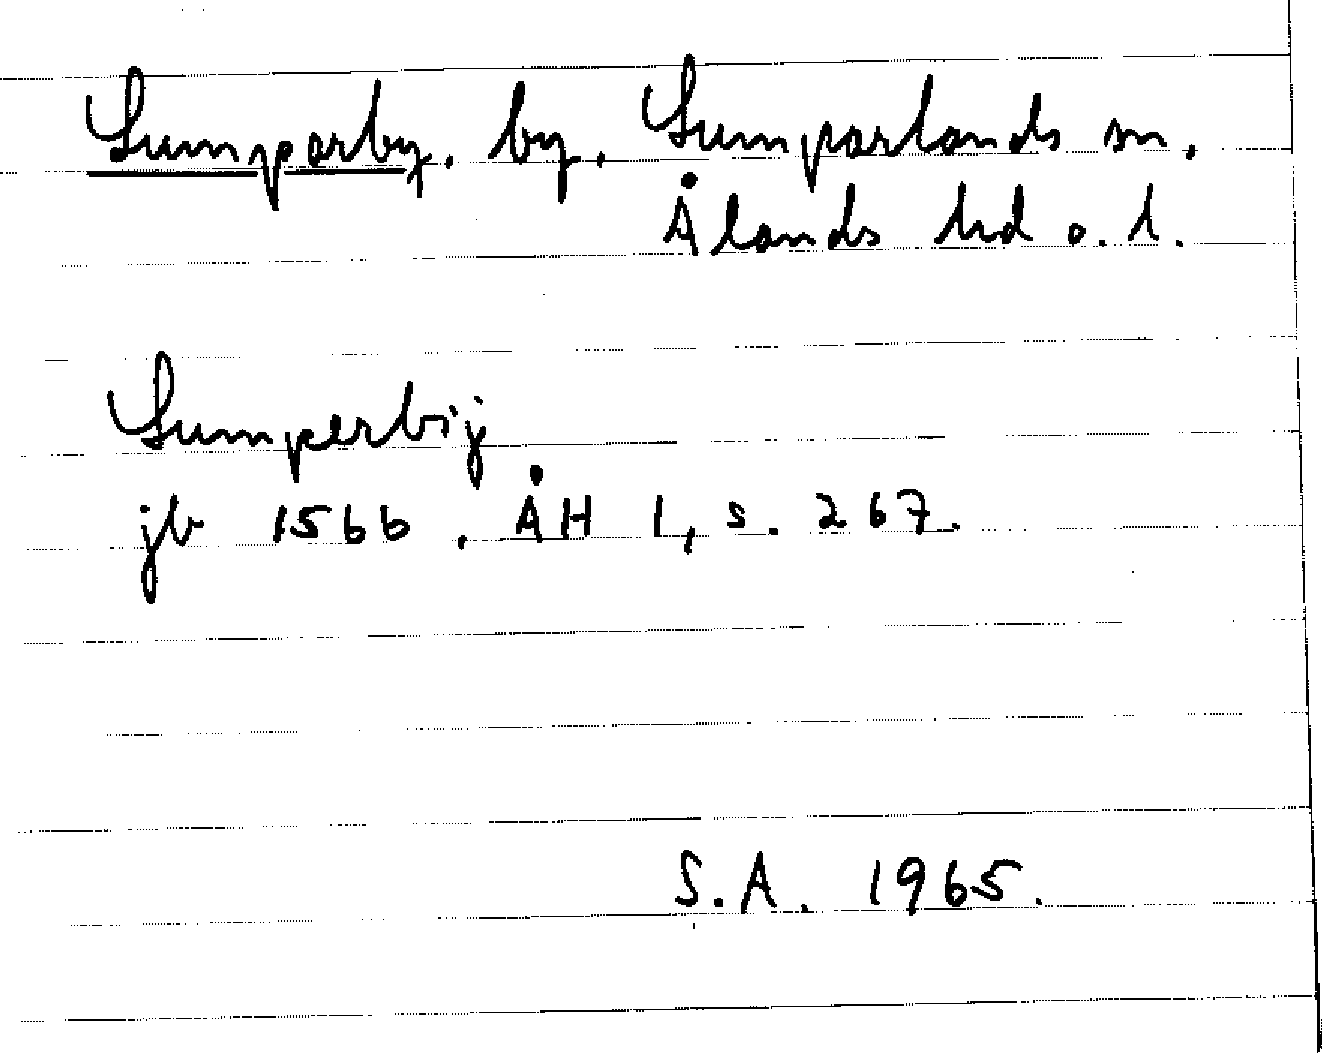 Sumparby, by, Sumparlands sn,
Ålands hd o. l.
Sumperbÿ
jb 1566, ÅH I, s. 267.
S.A. 1965.